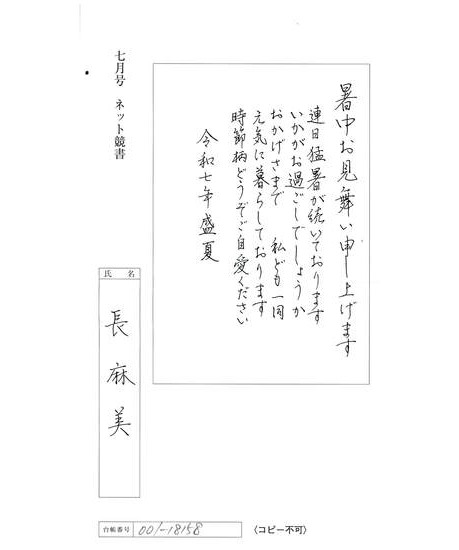 暑中お見舞い申し上げます
連日猛暑が続いております
いかがお過ごしでしょうか
おかげさまで 私ども一同
元気に暮らしております
時節柄どうぞご自愛ください
令和七年盛夏
七月号 ネット競書
氏名
長麻美
台帳番号 001-18158
〈コピー不可〉